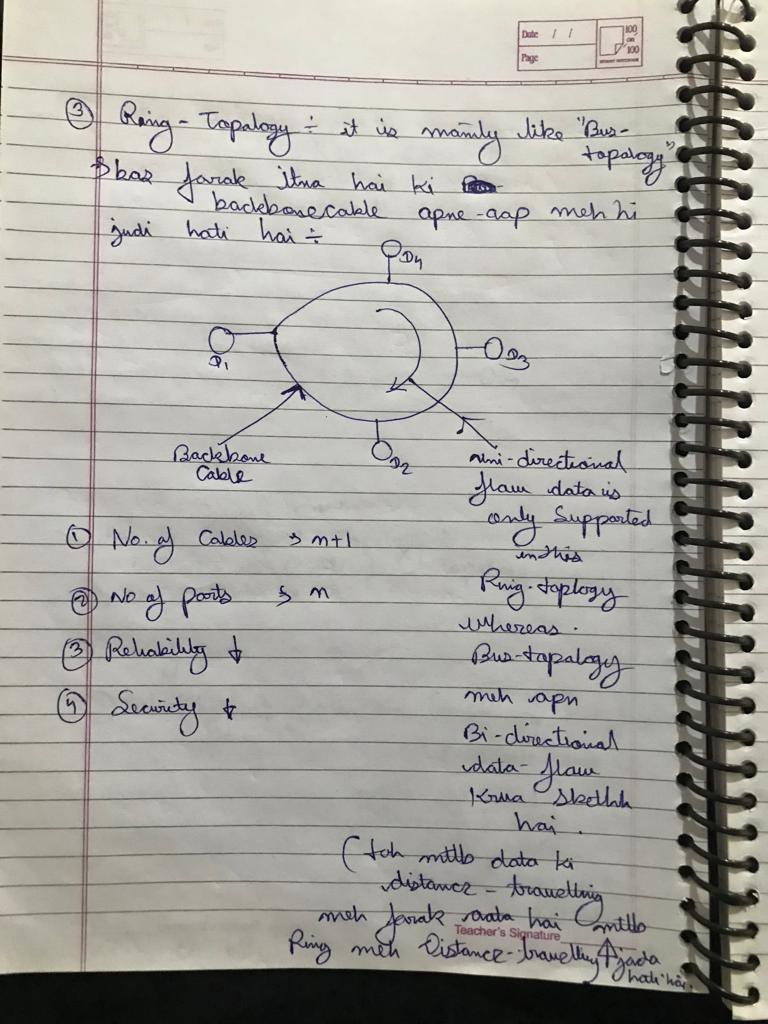 Date / /
Page
100
on
100
③ Ring - Topalogy ÷ it is mainly like "Bus-
topalogy"
bas farak itna hai ki
backbone cable apne-aap meh hi
judi hati hai ÷
D4
D1
D3
D2
Backbone
Cable
uni-directional
flaw data is
only Supported
in this
Ring-toplogy
whereas.
Bus-topalogy
meh apn
Bi-directional
data-flaw
Krwa Skethh
hai.
① No. of Cables → n+1
② No of ports → n
③ Reliability ↓
④ Security ↓
(toh mtlb data ki
distance - travelling
meh farak aata hai mtlb
Teacher's Signature
Ring meh Distance-travelling ↑ jada
hati hai.